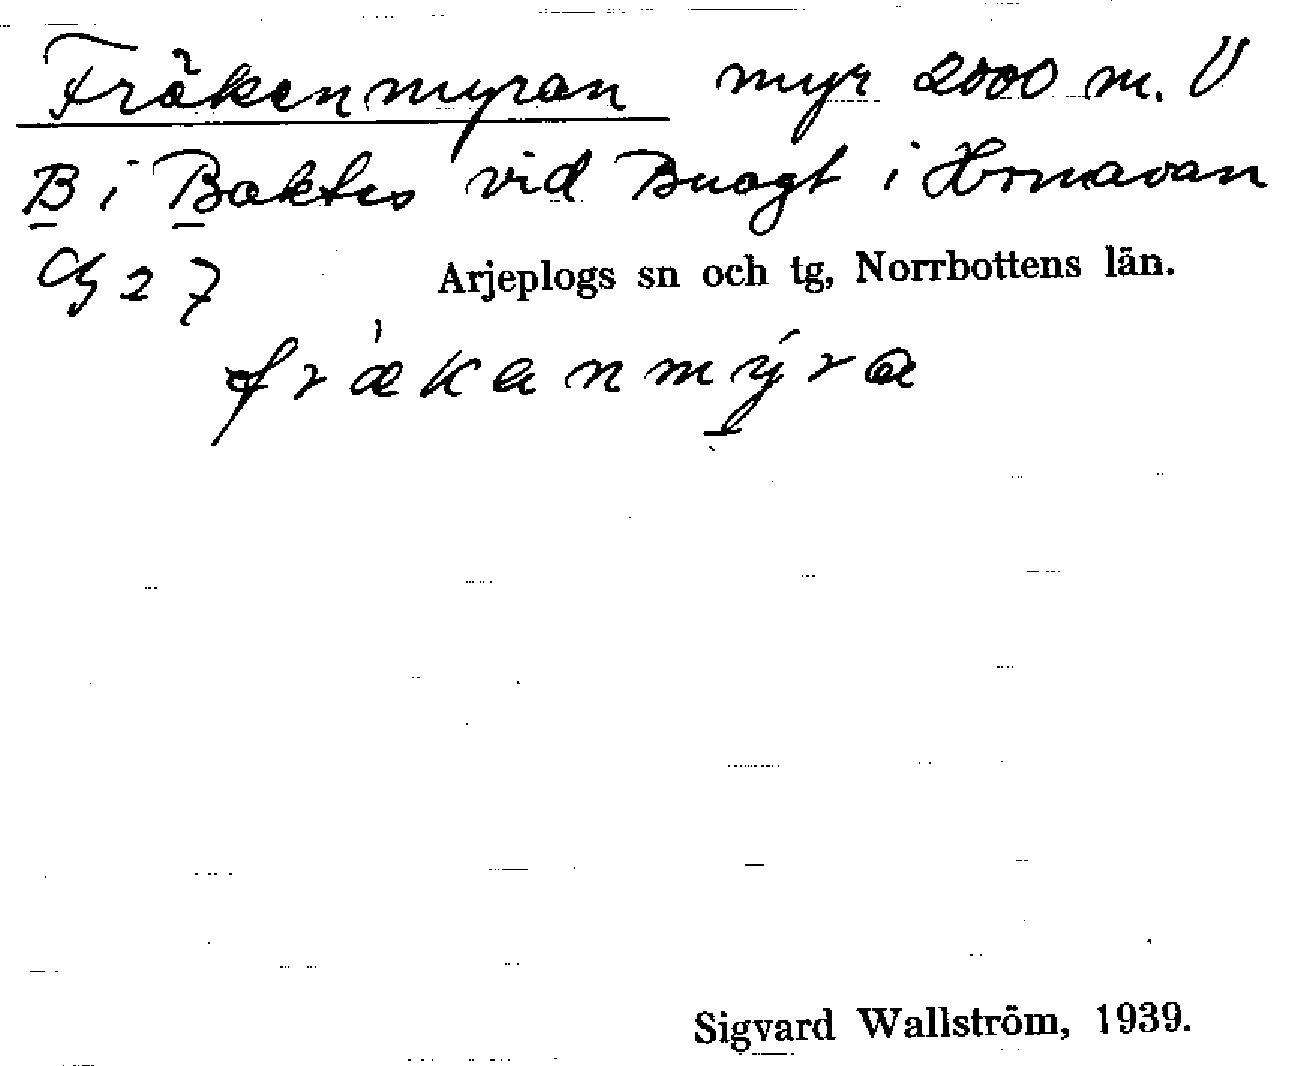 Fräkenmyran myr 2000 m. V
B i Baktes vid Buogt i Hornavan
27 Arjeplogs sn och tg, Norrbottens län.
fr̀ækanmýra
Sigvard Wallström, 1939.